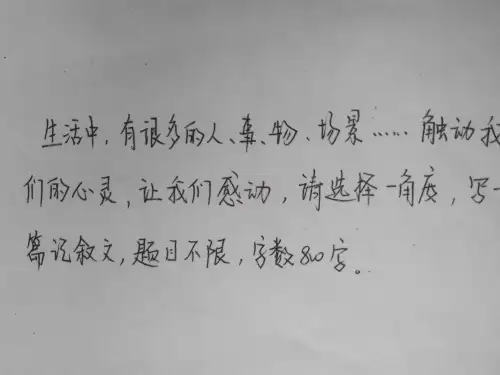 生活中，有很多的人、事、物、场景……触动我
们的心灵，让我们感动，请选择一角度，写一
篇记叙文，题目不限，字数800字。